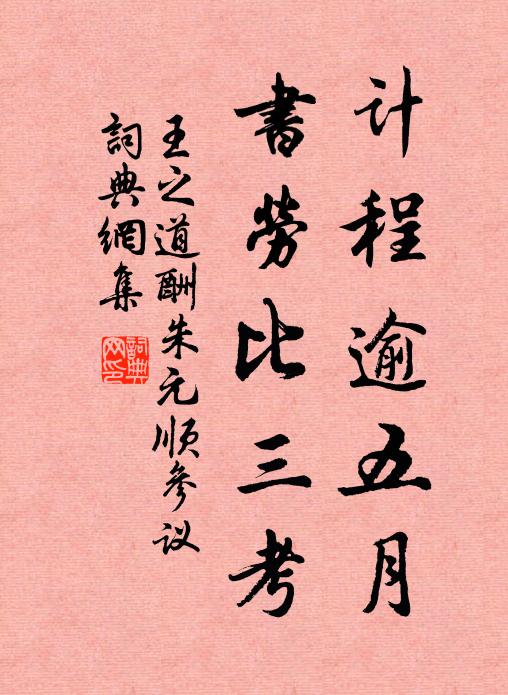 计程逾五月
書勞比三考
王之道酬朱元顺參议
詞典網集
詞典网印